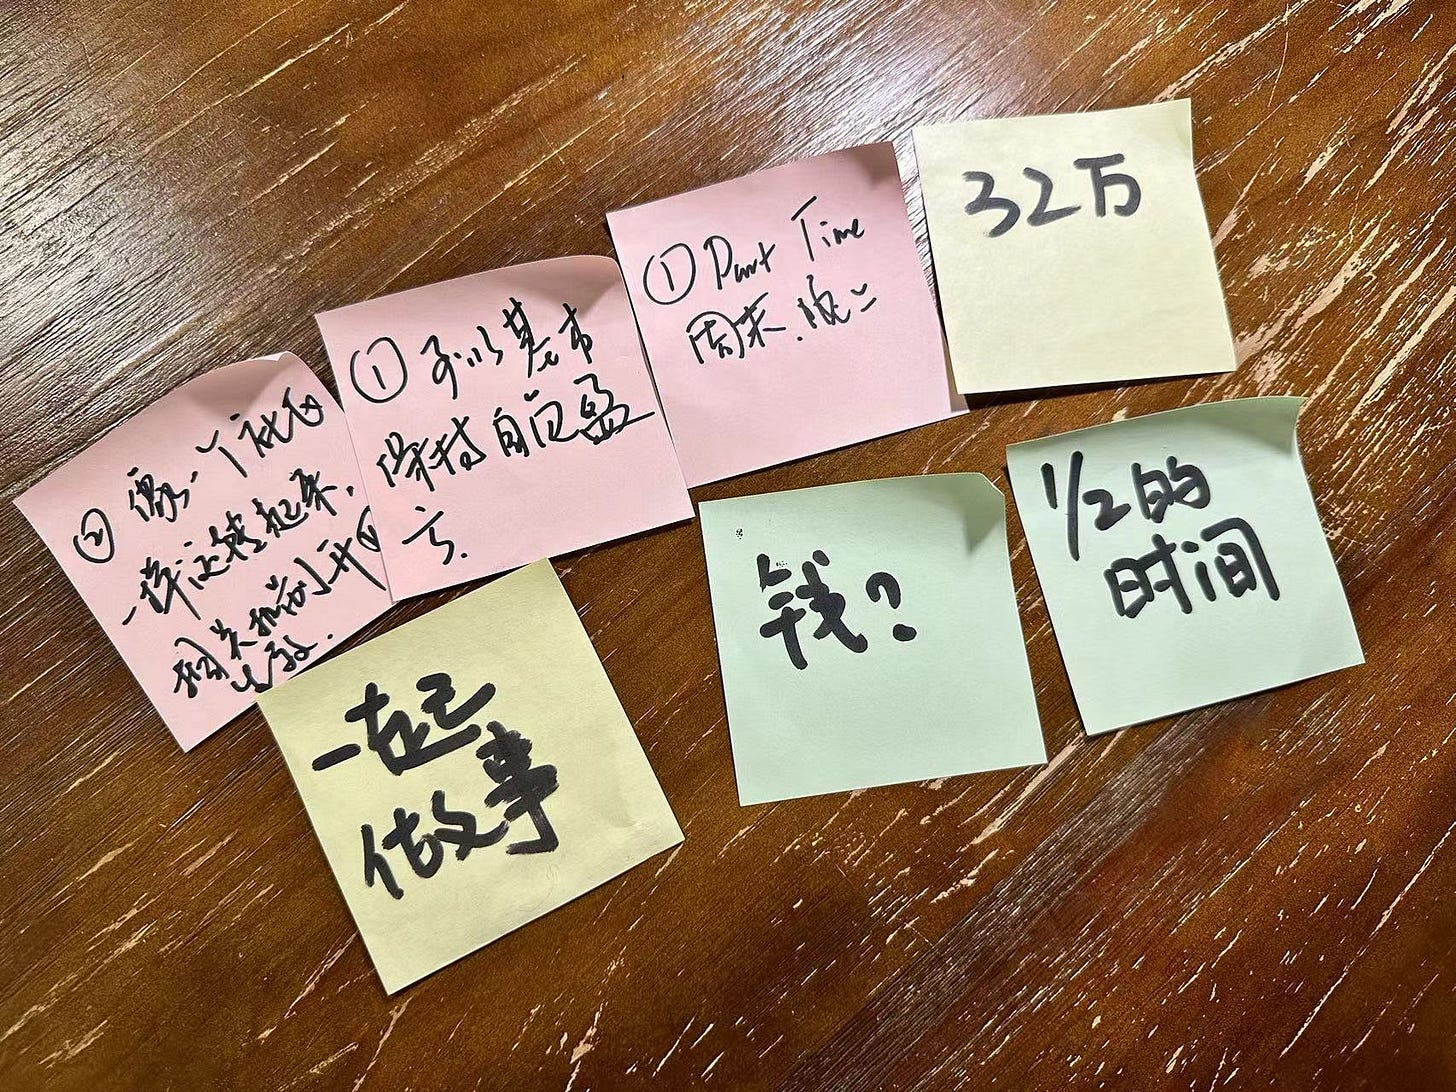 ② 像一个社区
一样运转起来，
相关机制开
生效.
① 可以基本
保持自负盈
亏.
① Part Time
周末.晚上
32万
一起
做事
钱?
1/2的
时间